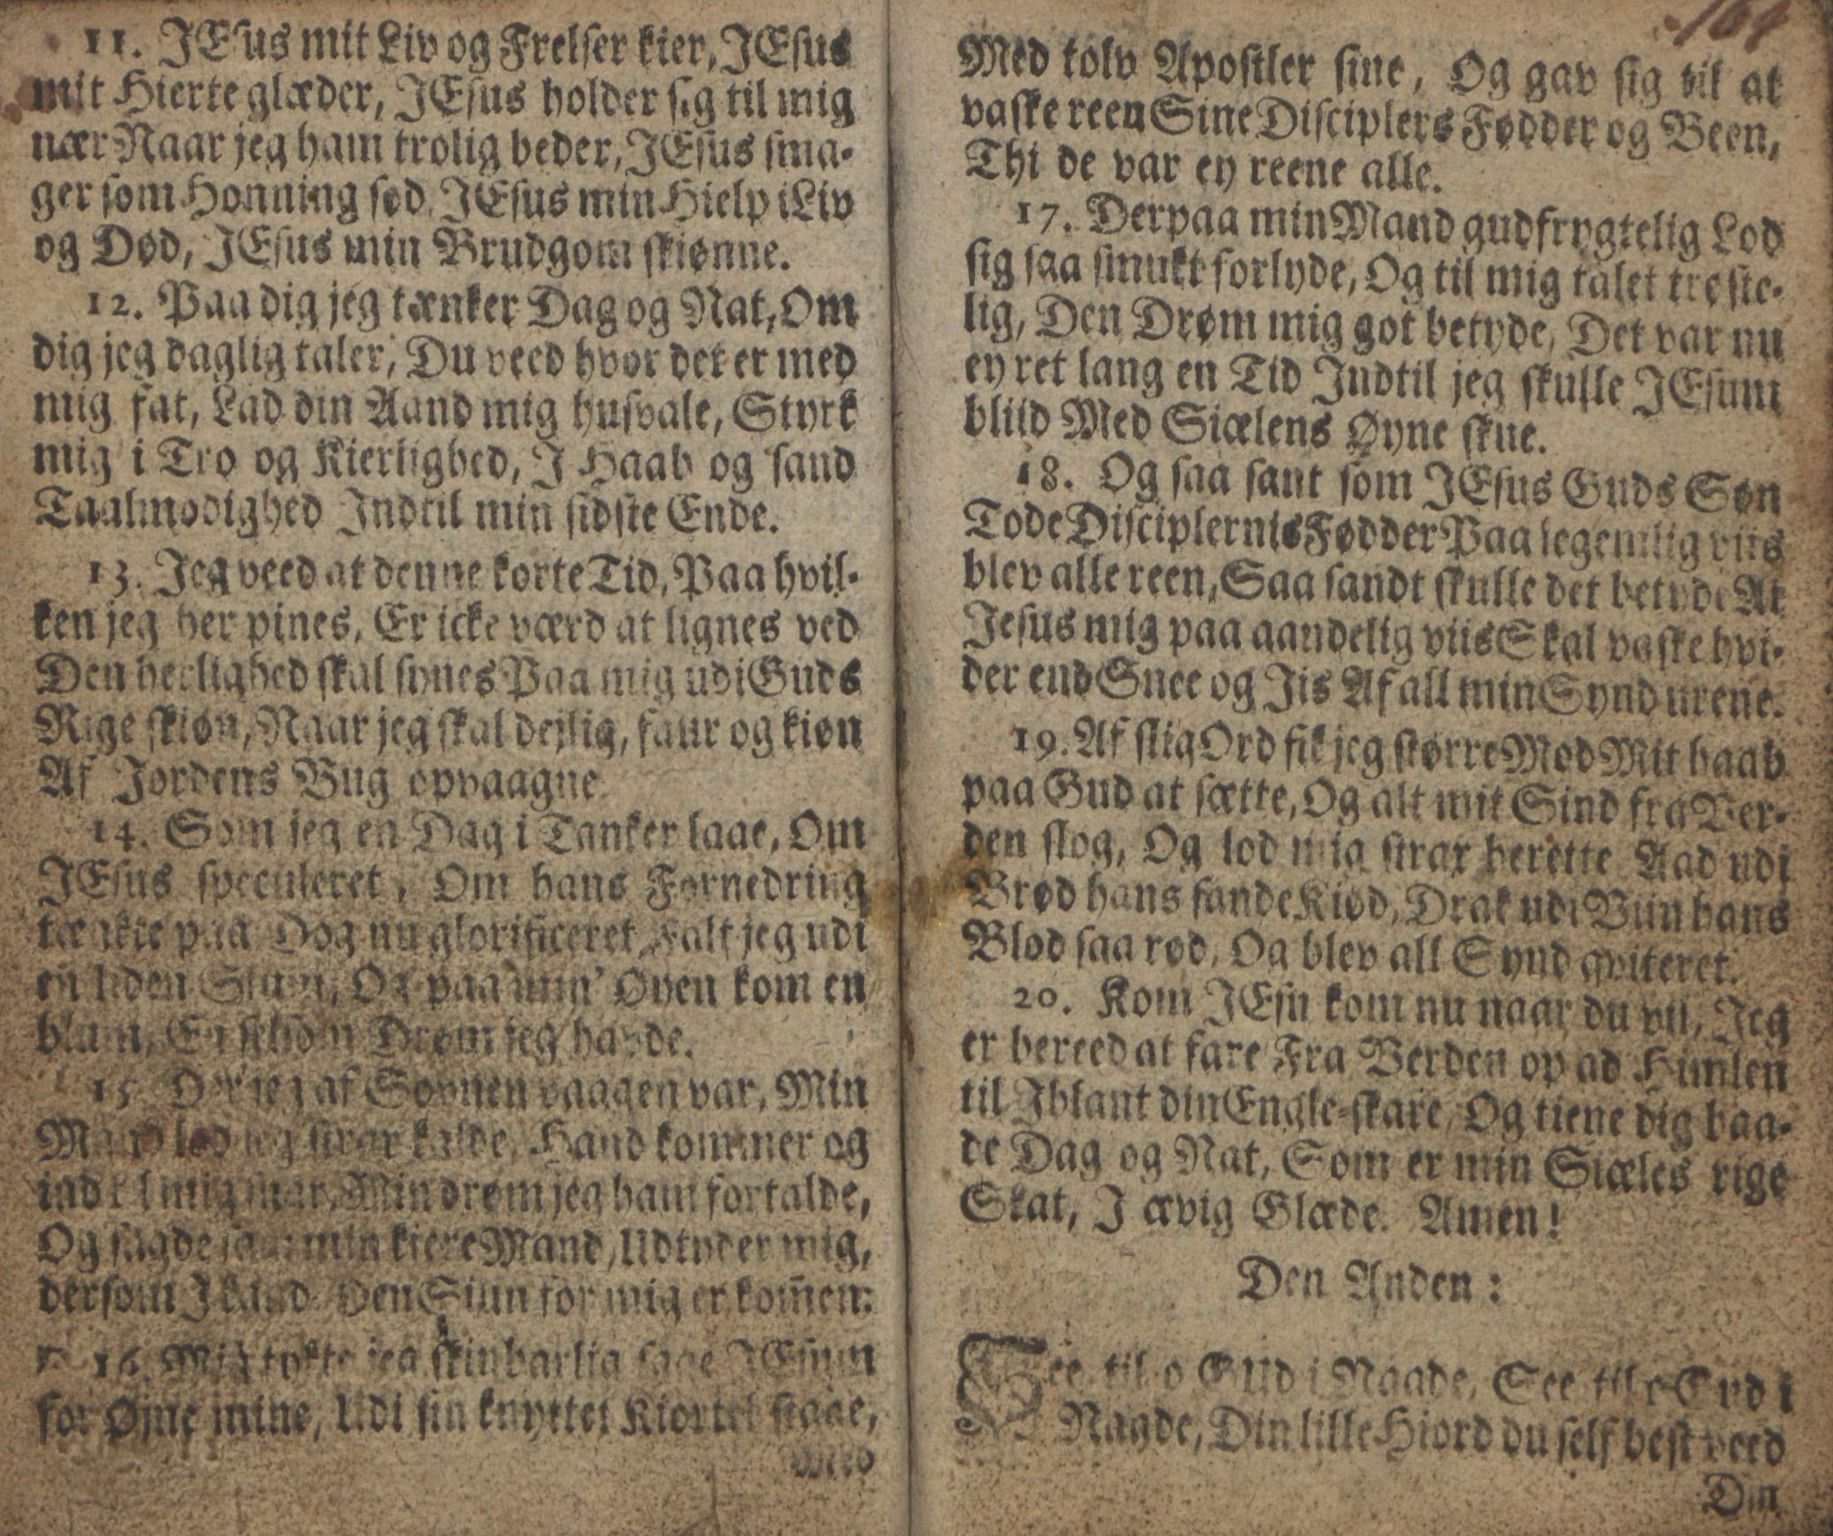 11. JEsus mit Liv og Frelser kier, JEsus
mit Hierte glæder, JEsus holder sig til mig
nær Naar jeg ham trolig beder, JEsus sma-
ger som Honning sød, JEsus min Hielp i Liv
og Død, JEsus min Brudgom skiønne.
12. Paa dig jeg tænker Dag og Nat, Om
dig jeg daglig taler, Du veed hvor det er med
mig fat, Lad din Aand mig husvale, Styrk
mig i Tro og Kierlighed, J Haab og sand
Taalmodighed Indtil min sidste Ende.
13. Jeg veed at denne korte Tid, Paa hvil-
ken jeg her pines, Er icke værd at lignes ved
Den herlighed skal synes Paa mig udi Guds
Rige skiøn, Naar jeg skal dejlig, faur og kiøn
Af Jordens Bug opvaagne
14. Som jeg en Dag i Tanker laae, Om
JEsus speculeret, Om hans Fornedring
tænkte paa Dog nu glorificeret, Falt jeg udi
en liden Slum, Og paa min Øyen kom en
blum, En selsom Drøm jeg havde.
15. Der jeg af Søvnen vaagen var, Min
Mand lod jeg strax kalde, Hand kommer og
ind til mig snar, Min drøm jeg ham fortalde,
Og sagde saa min kiere Mand, Udtyder mig,
dersom J kand Den Siun for mig er kom̄en:
16. Mig tykte jeg skinbarlig saae JEsum
for Øjne mine, Udi sin knyttet Kiortel staae,
Med
164
Med tolv Apostler sine, Og gav sig til at
vaske reen Sine Disciplers Fødder og Been,
Thi de var ey reene alle.
17. Derpaa min Mand gudfrygtelig Lod
sig saa smukt forlyde, Og til mig talet trøste-
lig, Den Drøm mig got betyde, Det var nu
ey ret lang en Tid Indtil jeg skulle JEsum
bliid Med Siælens Øyne skue.
18. Og saa sant som JEsus Guds Søn
Tode Disciplernis Fødder Paa legemlig viis
blev alle reen, Saa sandt skulle det betyde At
Jesus mig paa aandelig viis Skal vaske hvi-
der end Snee og Jis Af all min Synd urene.
19. Af slig Ord fik jeg større Mod Mit haab
paa Gud at sætte, Og alt mit Sind fra Ver-
den slog, Og lod mig strax berette Aad udi
Brød hans sande Kiød, Drak udi Viin hans
Blod saa rød, Og blev all Synd qviteret.
20. Kom JEsu kom nu naar du vil, Jeg
er bereed at fare Fra Verden op ad Himlen
til Iblant din Engle-skare, Og tiene dig baa-
de Dag og Nat, Som er min Siæles rige
Skat, J ævig Glæde. Amen!
Den Anden:
See til o Gud i Naade, See til o Gud i
Naade, Din lille Hiord du self best veed
Din